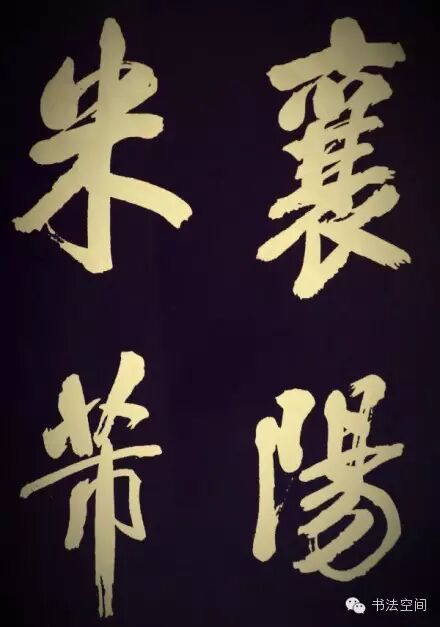 襄陽
米芾
书法空间